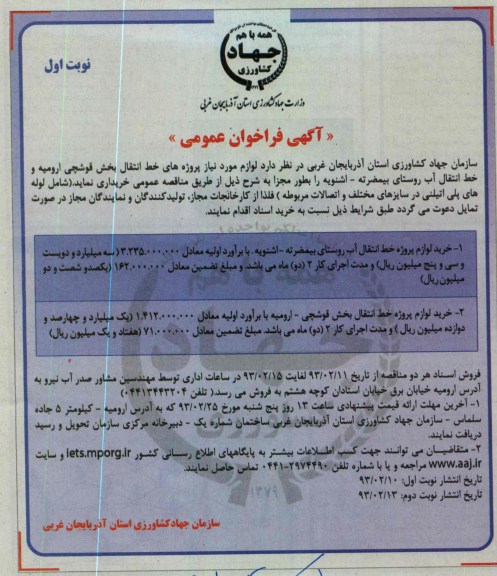 همه با هم
جهاد
کشاورزی
نوبت اول
وزارت جهاد کشاورزی استان آذربایجان غربی
« آگهی فراخوان عمومی »
سازمان جهاد کشاورزی استان آذربایجان غربی در نظر دارد لوازم مورد نیاز پروژه های خط انتقال بخش قوشچی ارومیه و
خط انتقال آب روستای بیمضرته - اشنویه را بطور مجزا به شرح ذیل از طریق مناقصه عمومی خریداری نماید.(شامل لوله
های پلی اتیلنی در سایزهای مختلف و اتصالات مربوطه ) فلذا از کارخانجات مجاز، تولیدکنندگان و نمایندگان مجاز در صورت
تمایل دعوت می گردد طبق شرایط ذیل نسبت به خرید اسناد اقدام نمایند.
۱- خرید لوازم پروژه خط انتقال آب روستای بیمضرته -اشنویه . با برآورد اولیه معادل ۳.۲۳۵.۰۰۰.۰۰۰ (سه میلیارد و دویست
و سی و پنج میلیون ریال) و مدت اجرای کار ۲ (دو) ماه می باشد. و مبلغ تضمین معادل ۱۶۲.۰۰۰.۰۰۰ (یکصدو شصت و دو
میلیون ریال)
۲- خرید لوازم پروژه خط انتقال بخش قوشچی - ارومیه با برآورد اولیه معادل ۱.۴۱۲.۰۰۰.۰۰۰ (یک میلیارد و چهارصد و
دوازده میلیون ریال ) و مدت اجرای کار ۲ (دو) ماه می باشد. مبلغ تضمین معادل ۷۱.۰۰۰.۰۰۰ (هفتاد و یک میلیون ریال)
فروش اسناد هر دو مناقصه از تاریخ ۹۳/۰۲/۱۱ لغایت ۹۳/۰۲/۱۵ در ساعات اداری توسط مهندسین مشاور صدر آب نیرو به
آدرس ارومیه خیابان برق خیابان استادان کوچه هشتم به فروش می رسد.( تلفن ۰۴۴۱۳۴۴۳۲۰۴)
۱- آخرین مهلت ارائه قیمت پیشنهادی ساعت ۱۳ روز پنج شنبه مورخ ۹۳/۰۲/۲۵ که به آدرس ارومیه - کیلومتر ۵ جاده
سلماس - سازمان جهاد کشاورزی استان آذربایجان غربی ساختمان شماره یک - دبیرخانه مرکزی سازمان تحویل و رسید
دریافت نمایند.
۲- متقاضیان می توانند جهت کسب اطلاعات بیشتر به پایگاههای اطلاع رسانی کشور iets.mporg.ir و سایت
www.aaj.ir مراجعه و یا با شماره تلفن ۲۹۷۴۴۹۰-۰۴۴۱ تماس حاصل نمایند.
تاریخ انتشار نوبت اول: ۹۳/۰۲/۱۰
تاریخ انتشار نوبت دوم: ۹۳/۰۲/۱۳
سازمان جهادکشاورزی استان آذربایجان غربی